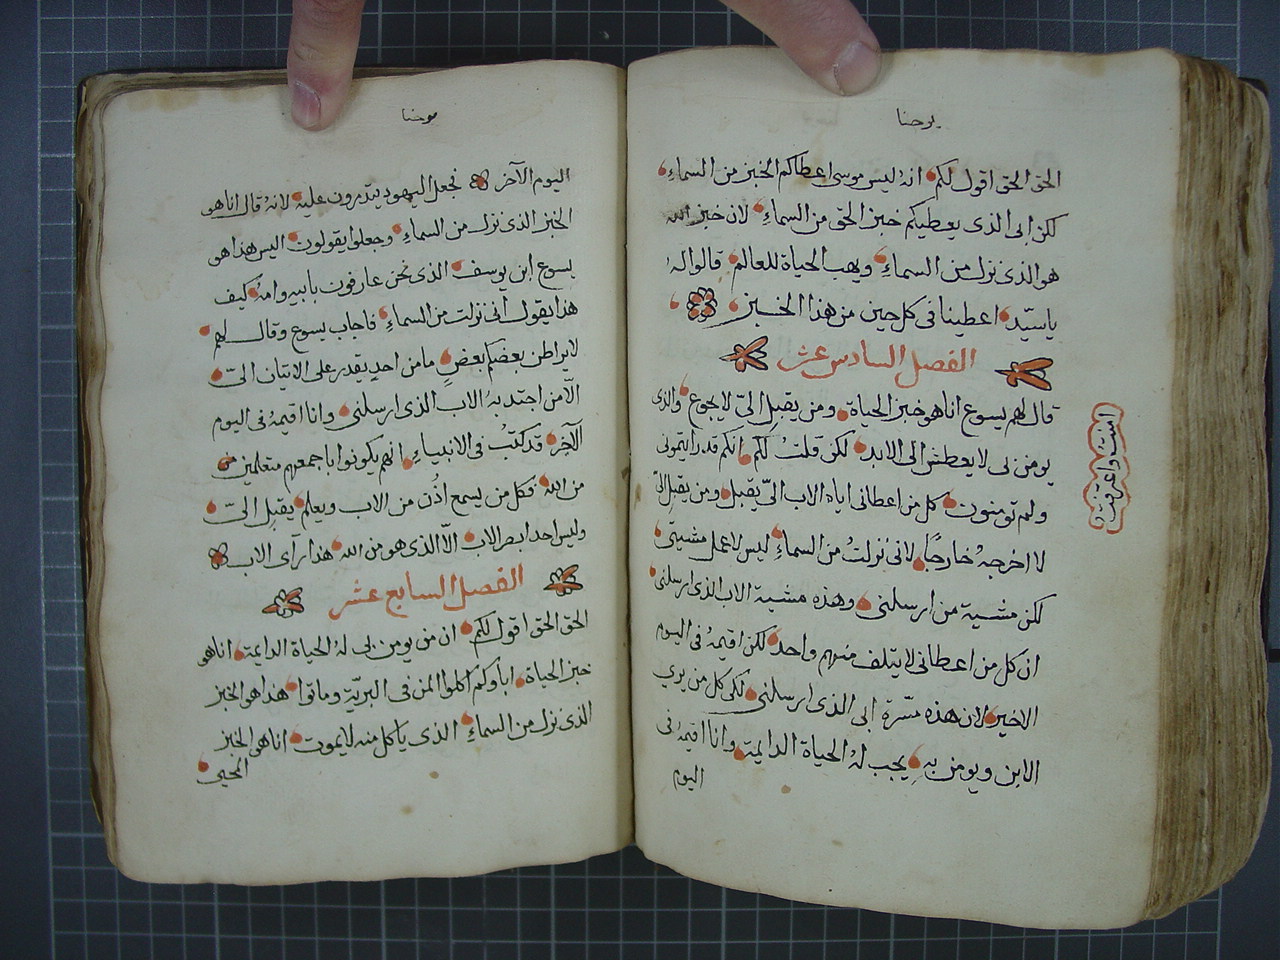 يوحنا
الحق الحق اقول لكم انه ليس موسى اعطاكم الخبز من السماءِ
لكن ابى الذى يعطيكم خبز الحق من السماءِ لان خبز الله
هو الذى نزل من السماءِ ويهب الحياة للعالم قالوا له
ياسيّد اعطينا فى كل حين من هذا الخبز
الفصل السادس عشر
قال لهم يسوع انا هو خبز الحياة ومن يقبل الىّ لا يجوع والذى
يومن بى لا يعطش الى الابد لكن قلتُ لكم انكم قد رايتمونى
ولم تومنوت كل من اعطانى اياه الاب الىّ يقبل ومن يقبل الىّ
لا اخرجهُ خارجًا لانى نزلتُ من السماءِ ليس لاعمل مشيتى
لكن مشية من ارسلنى وهذه مشية الاب الذى ارسلنى
ان كل من اعطانى لا يتلف منهم واحد لكن اقيمهُ فى اليوم
الاخير لان هذه مسّرة ابى الذى ارسلنى لكى كل من يري
الابن ويومن بهِ يجب لهُ الحياة الدايمة وانا اقيمهُ فى
اليوم
يوحنا
اليوم الآخر فجعل اليهود يتدمرون عليهِ لانهُ قال انا هو
الخبز الذى نزل من السماءِ وجعلوا يقولوت اليس هذا هو
يسوع ابن يوسف الذى نحن عارفون بابيهِ وامهُ كيف
هذا يقول انى نزلت من السماءِ فاجاب يسوع وقال لهم
لا يراطن بعضكم بعضٍ ما من احدٍ يقدر على الاتيان الىّ
الّا من اجتدبهُ الاب الذى ارسلنى وانا اقيمهُ فى اليوم
الآخِر قد كتبُ فى الانبياءِ انهم يكونوا باجمعهم متعلمين
من الله فكل من يسمع اذُن من الاب ويعلم يقبل الىّ
وليس احد ابصر الاب الّا الذى هو من الله هذا رآى الاب
الفصل السابع عشر
الحق الحق اقول لكم ان من يومن بى لهُ الحياة الدايمة انا هو
خبز الحياة اباوكم اكلوا المن فى البريّةِ وماتوا هذا هو الخبز
الذى نزل من السماءِ الذى ياكل منه لا يموت انا هو الخبز
الحيى